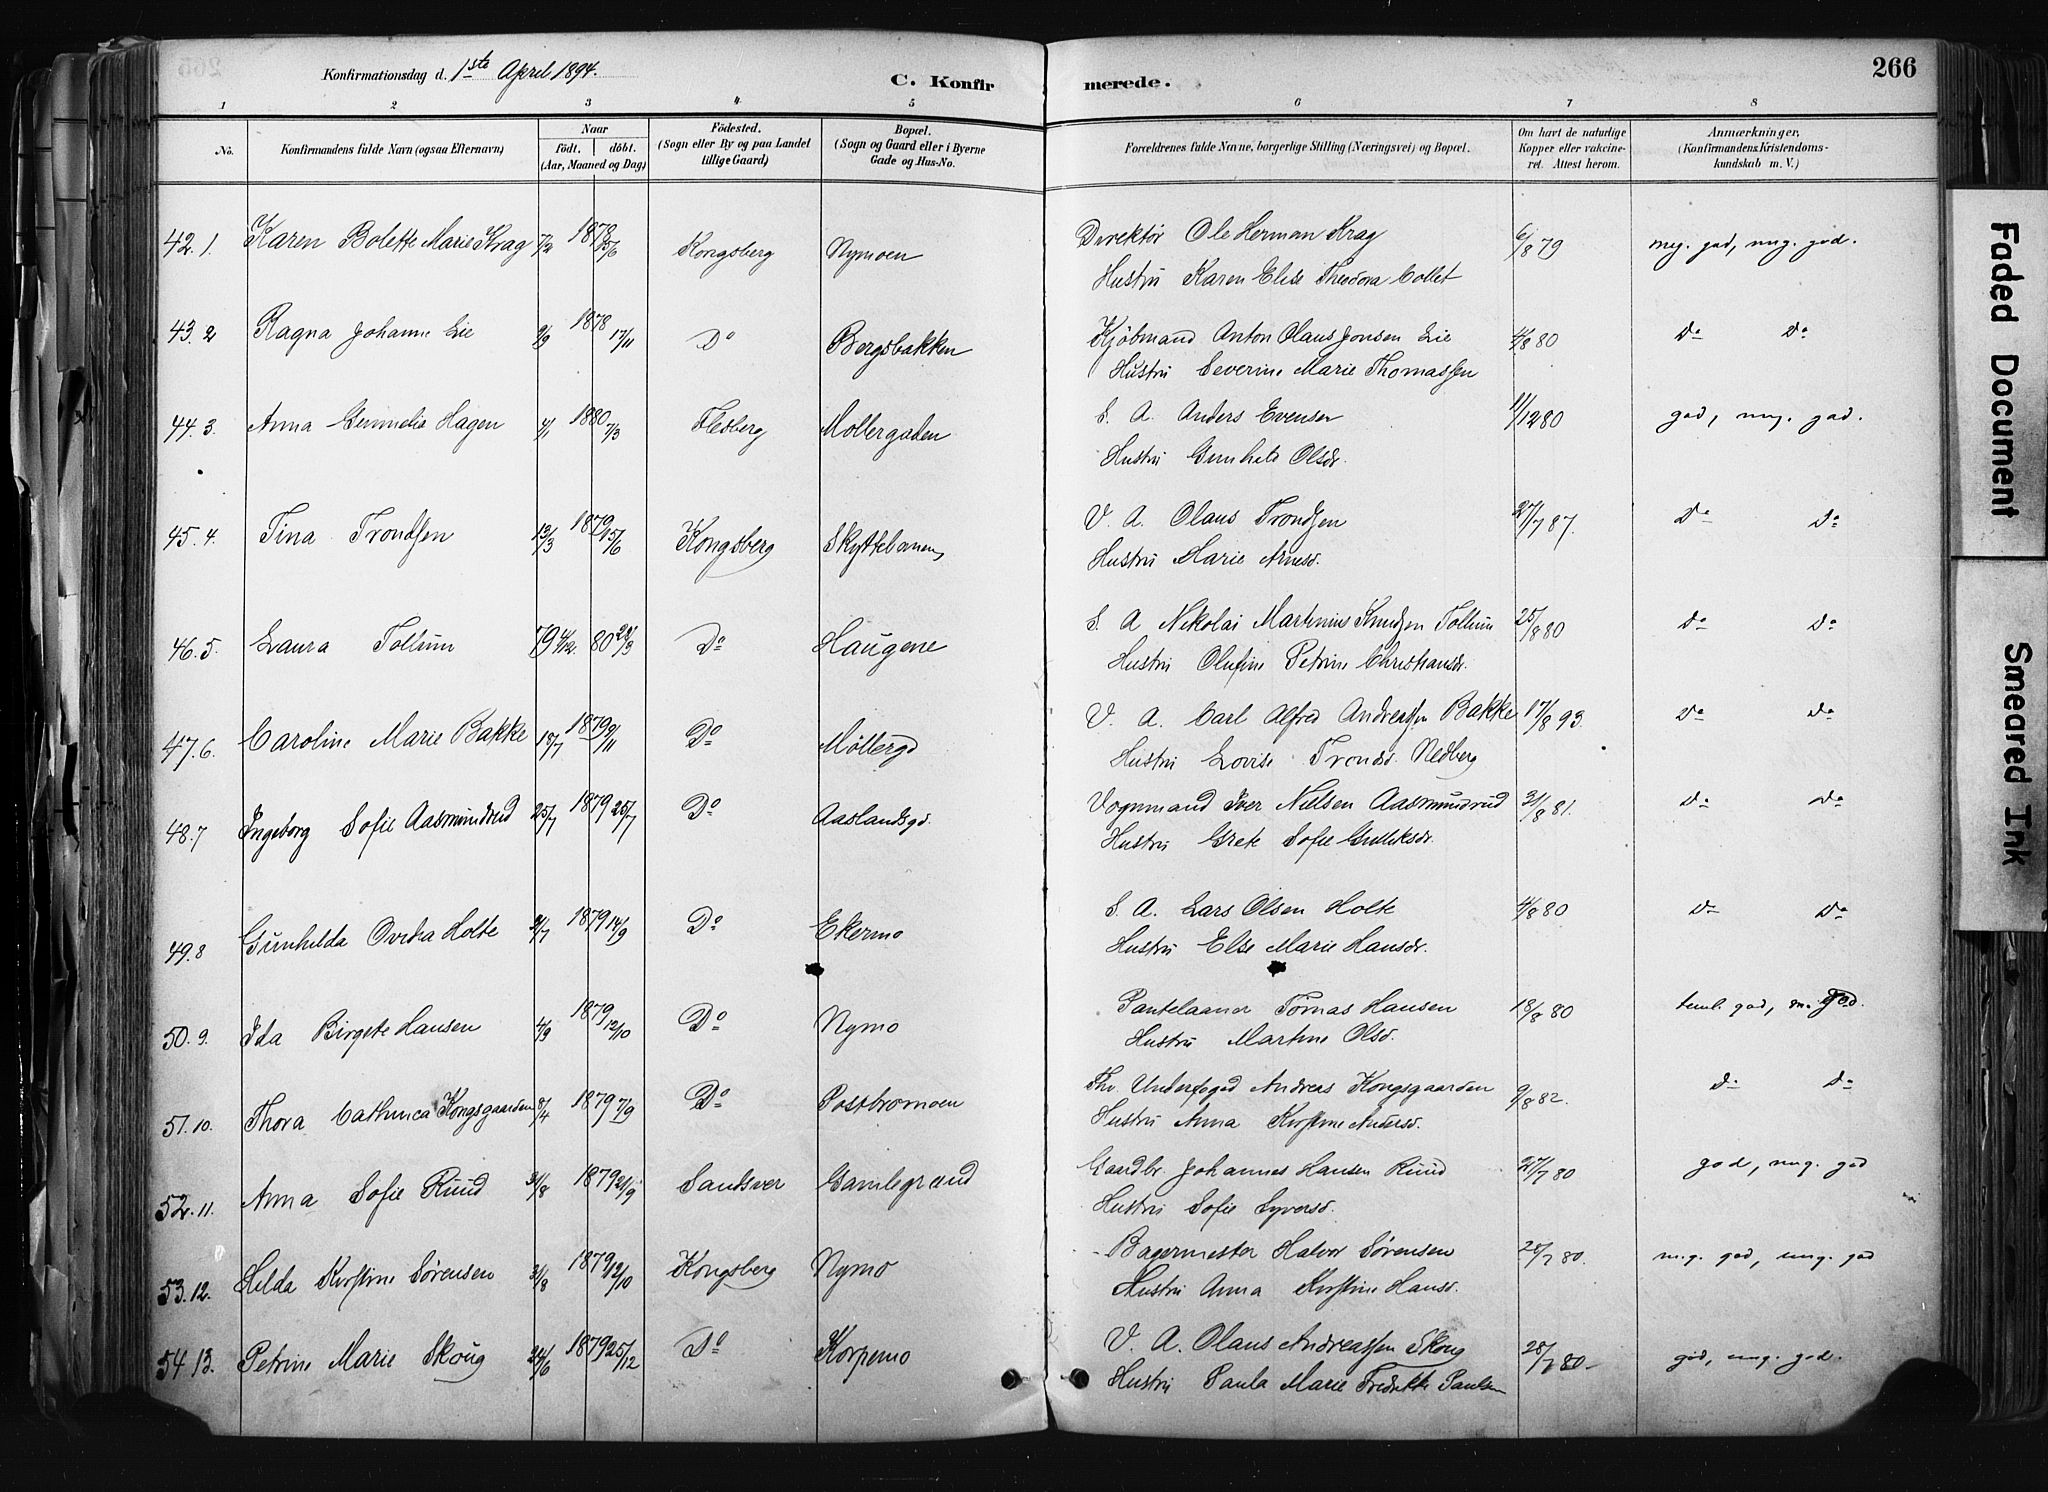 Konfirmationsdag d. 1ste April 1894.
C. Konfirmerede.
266
1 2 3 4 5 6 7 8
No.
Konfirmandens fulde Navn (ogsaa Efternavn)
Naar
født. døbt.
(Aar, Maaned og Dag)
Fødested.
(Sogn eller By og paa Landet tillige Gaard)
Bopæl.
(Sogn og Gaard eller i Byerne Gade og Hus-No.
Forældrenes fulde Navne, borgerlige Stilling (Næringsvei) og Bopæl.
Om havt de naturlige Kopper eller vakcineret. Attest herom.
Anmærkninger.
(Konfirmandens Kristendomskundskab m. V.)
42. 1. Karen Bolette Marie Krag 7/2 1879 15/6 Kongsberg Nymoen Direktør Ole Herman Krag 6/8 79 meg. god, mg. god.
Hustru Karen Elise Theodora Collet
43. 2 Ragna Johanne Lie 9/9 1878 17/11 Do Bergsbakken Kjøbmand Anton Olaus Jonsen Lie 4/8 80 Do Do
Hustru Severine Marie Thomassen
44. 3. Anna Hagen 4/1 1880 7/3 Flesberg Møllergaden S. A. Anders Evensen 11/12 80 god, mg. god.
Hustru Gunhild Olsdr.
45. 4. Tina Trondsen 13/3 1879 15/6 Kongsberg Skyttebanen V. A. Olaus Trondsen 27/7 87. Do Do
Hustru Marie Arnesd.
46. 5. Laura Tollum 79 4/12. 80 28/3 Do Haugene S. A Nikolai Martinius Knudsen Tollum 25/8 80 Do Do
Hustru Olufine Petrine Christiansdr.
47. 6. Caroline Marie Bakke 18/7 1879 9/11 Do Møllergd V. A. Carl Alfred Andreassen Bakke 17/8 93. Do Do
Hustru Lovise Trondsd. Nedberg
48. 7 Ingeborg Sofie Aasmundrud 25/7 1879 25/7 Do Aaslandsgd. Vognmand Iver Nielsen Aasmundrud 31/8 81. Do Do
Hustru Grete Sofie Gulliksdr.
49. 8 Gunhilda Ovedia Holte 4/7 1879 14/9 Do Ekermo S. A. Lars Olsen Holte 4/8 80 Do Do
Hustru Else Marie Hansdr.
50. 9. Ida Birgete Hansen 4/9 1879 12/10 Do Nymo Pantelaaner Tomas Hansen 18/8 80 teml. god, m. god.
Hustru Martine Olsd.
51. 10. Thora Cathinca Kongsgaarden 8/4 1879 7/9 Do Postbromoen Fhv. Underfoged Andreas Kongsgaarden 9/8 82. Do Do
Hustru Anna Kirstine Andersd.
52. 11. Anna Sofie Ruud 31/8 1879 21/9 Sandsver Gamlegrend Gaardbr. Johannes Hansen Ruud 27/7 80 god, mg. god
Hustru Sofie Syversd.
53. 12. Hilda Kirstine Sørensen 31/8 1879 12/10 Kongsberg Nymo Bagermester Halvor Sørensen 28/7 80. m.g. god, mg. god
Hustru Anna Kirstine Hansd.
54 13. Petrine Marie Skoug 24/6 1879 25/12 Do Korpemo V. A. Olaus Andreassen Skoug 28/7 80 god, mg. god.
Hustru Paula Marie Fredrikke Paulsen
Faded Document
Smeared Ink